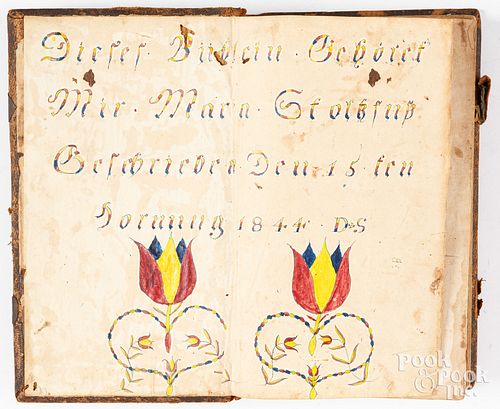 Dieses · Büchlein · Gehöret
Mir · Mara · Stoltzfuß
Geschrieben Den 15 ten
Hornung 1844 · D·S
POOK
& POOK
INC